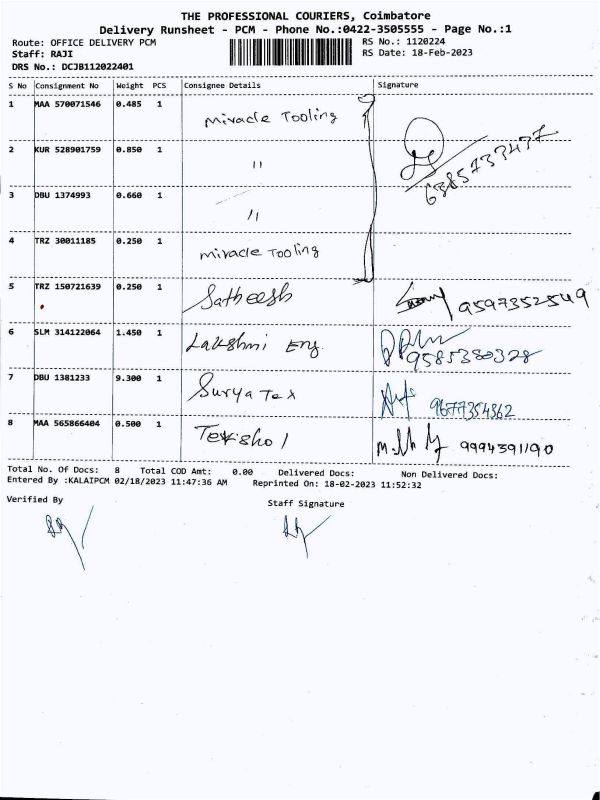 THE PROFESSIONAL COURIERS, Coimbatore
Delivery Runsheet - PCM - Phone No.:0422-3505555 - Page No.:1
Route: OFFICE DELIVERY PCM
RS No.: 1120224
Staff: RAJI
RS Date: 18-Feb-2023
DRS No.: DCJB112022401
S No Consignment No Weight PCS Consignee Details Signature
1 MAA 570071546 0.485 1 Miracle Tooling
2 KUR 528901759 0.850 1 " 6385733437
3 DBU 1374993 0.660 1 "
4 TRZ 30011185 0.250 1 Miracle Tooling
5 TRZ 150721639 0.250 1 Satheesh 9597352549
6 SLM 314122064 1.450 1 Lakshmi Eng. 9585380328
7 DBU 1381233 9.300 1 Surya Tex 9677354362
8 MAA 565866404 0.500 1 9994391190
Total No. Of Docs: 8 Total COD Amt: 0.00 Delivered Docs: Non Delivered Docs:
Entered By :KALAIPCM 02/18/2023 11:47:36 AM Reprinted On: 18-02-2023 11:52:32
Verified By
Staff Signature